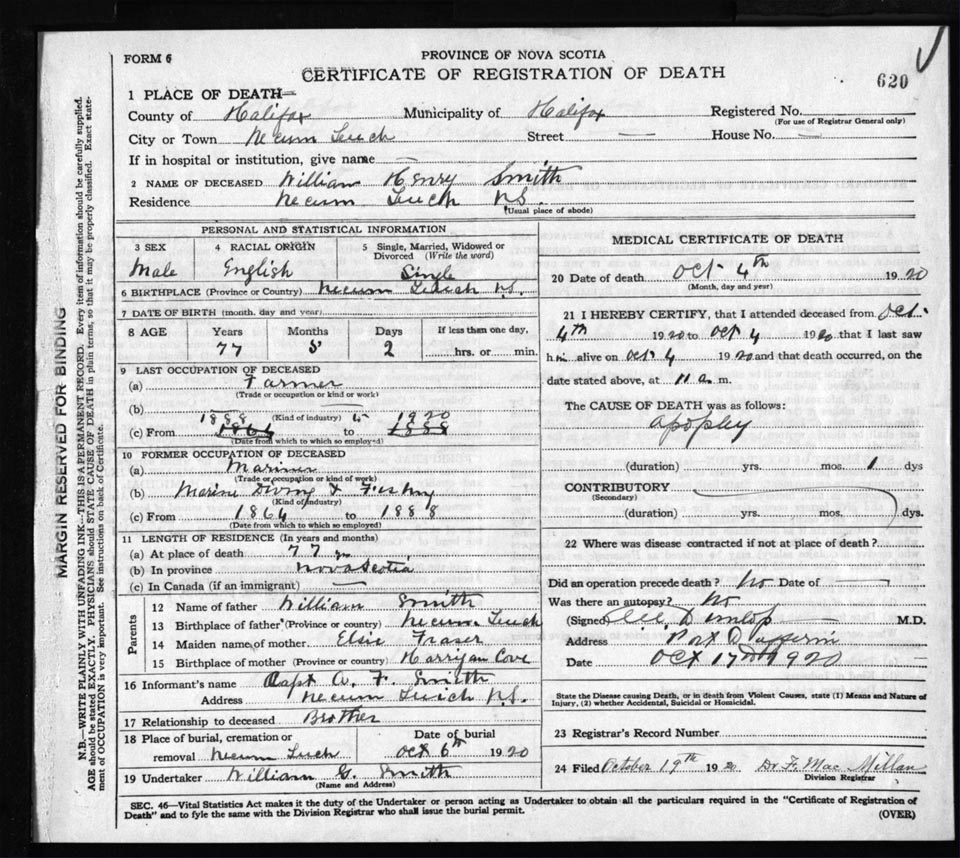 FORM 6
PROVINCE OF NOVA SCOTIA
CERTIFICATE OF REGISTRATION OF DEATH
620
1 PLACE OF DEATH—
County of Halifax Municipality of Halifax Registered No.
(For use of Registrar General only)
City or Town Necum Teuch Street — House No. —
If in hospital or institution, give name —
2 NAME OF DECEASED William Henry Smith
Residence Necum Teuch N.S.
(Usual place of abode)
PERSONAL AND STATISTICAL INFORMATION
3 SEX 4 RACIAL ORIGIN 5 Single, Married, Widowed or Divorced (Write the word)
Male English Single
6 BIRTHPLACE (Province or Country) Necum Teuch N.S.
7 DATE OF BIRTH (month, day and year)
8 AGE Years Months Days If less than one day,
77 5 2 hrs. or min.
9 LAST OCCUPATION OF DECEASED
(a) Farmer
(Trade or occupation or kind or work)
(b)
(Kind of industry)
1888 to 1920
(c) From 1864 to 1888
(Date from which to which so employed)
10 FORMER OCCUPATION OF DECEASED
(a) Mariner
(Trade or occupation or kind of work)
(b) Marine Diving & Fishing
(Kind of industry)
(c) From 1864 to 1888
(Date from which to which so employed)
11 LENGTH OF RESIDENCE (In years and months)
(a) At place of death 77 yrs
(b) In province Nova Scotia
(c) In Canada (if an immigrant) —
Parents
12 Name of father William Smith
13 Birthplace of father (Province or country) Necum Teuch
14 Maiden name of mother Elsie Fraser
15 Birthplace of mother (Province or country) Harrigan Cove
16 Informant's name Capt A. F. Smith
Address Necum Teuch N.S.
17 Relationship to deceased Brother
18 Place of burial, cremation or Date of burial
removal Necum Teuch Oct 6th 1920
19 Undertaker William G. Smith
(Name and Address)
MEDICAL CERTIFICATE OF DEATH
20 Date of death Oct 4th 1920
(Month, day and year)
21 I HEREBY CERTIFY, that I attended deceased from Oct.
4th 1920 to Oct 4 1920 that I last saw
him alive on Oct. 4 1920 and that death occurred, on the
date stated above, at 11 a. m.
The CAUSE OF DEATH was as follows:
apoplxy
(duration) yrs. mos. 1 dys
CONTRIBUTORY
(Secondary)
(duration) yrs. mos. dys.
22 Where was disease contracted if not at place of death?
Did an operation precede death? No Date of —
Was there an autopsy? No
(Signed) Dunlop — M.D.
Address Port Dufferin
Date Oct 17 1920
State the Disease causing Death, or in death from Violent Causes, state (1) Means and Nature of
Injury, (2) whether Accidental, Suicidal or Homicidal.
23 Registrar's Record Number
24 Filed October 19th 1920 Dr F. MacMillan
Division Registrar
SEC. 46—Vital Statistics Act makes it the duty of the Undertaker or person acting as Undertaker to obtain all the particulars required in the "Certificate of Registration of
Death" and to fyle the same with the Division Registrar who shall issue the burial permit.
(OVER)
MARGIN RESERVED FOR BINDING
N.B.—WRITE PLAINLY WITH UNFADING INK—THIS IS A PERMANENT RECORD. Every item of information should be carefully supplied.
AGE should be stated EXACTLY. PHYSICIANS should STATE CAUSE OF DEATH in plain terms, so that it may be properly classified. Exact state-
ment of OCCUPATION is very important. See instructions on back of Certificate.